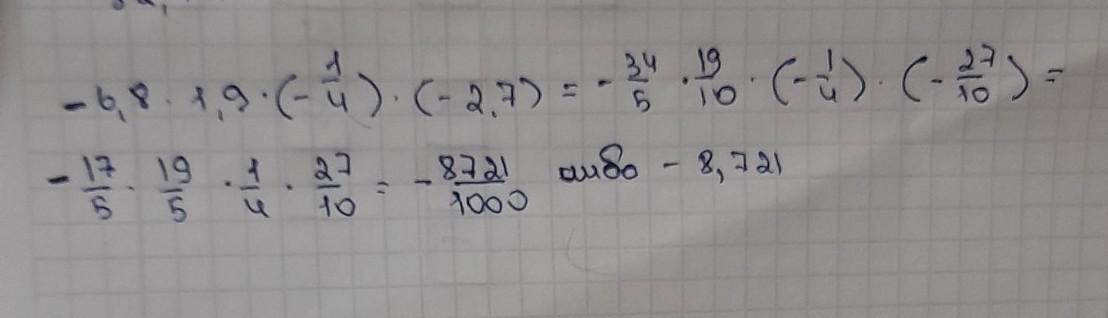 -6,8 · 1,9 · (-1/4) · (-2,7) = -34/5 · 19/10 · (-1/4) · (-27/10) =
-17/5 · 19/5 · 1/4 · 27/10 = -8721/1000 або - 8,721